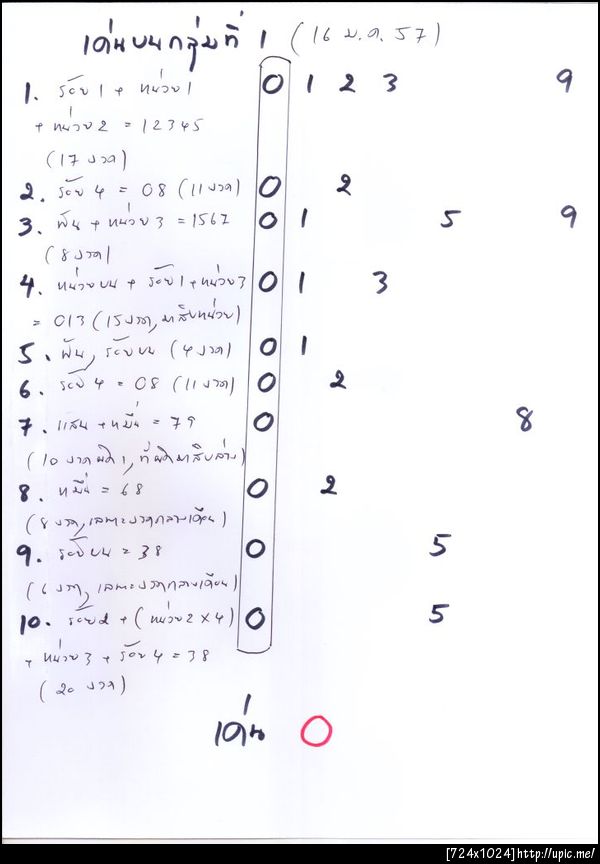 เด่นบนกลุ่มที่ 1 (16 ม.ค. 57)
1. ร้อย 1 + หน่วย 1 0 1 2 3 9
+ หน่วย 2 = 12345
(17 งวด)
2. ร้อย 4 = 08 (11 งวด) 0 2
3. พัน + หน่วย 3 = 1567 0 1 5 9
(8 งวด)
4. หน่วยบน + ร้อย 1 + หน่วย 3 0 1 3
= 013 (15 งวด, มาสิบหน่วย)
5. พัน, ร้อยบน (4 งวด) 0 1
6. ร้อย 4 = 08 (11 งวด) 0 2
7. แสน + หมื่น = 79 0 8
(10 งวดผิด 1, ที่ผิดมาสิบล่าง)
8. หมื่น = 68 0 2
(8 งวด, เฉพาะงวดกลางเดือน)
9. ร้อยบน = 38 0 5
(6 งวด, เฉพาะงวดกลางเดือน)
10. ร้อย + (หน่วย 2 x 4) 0 5
+ หน่วย 3 + ร้อย 4 = 38
(20 งวด)
เด่น 0
[724x1024]http://upic.me/